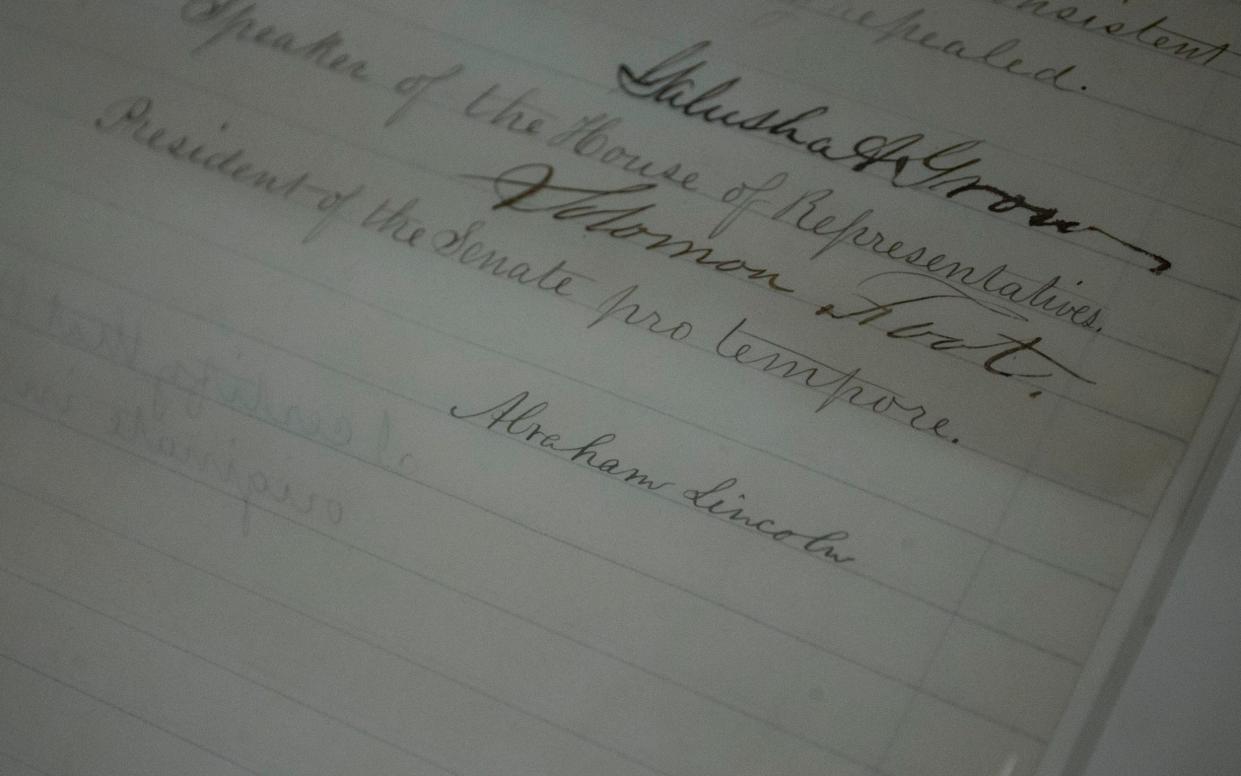 nsistent
repealed.
Galusha A. Grow
Speaker of the House of Representatives.
Solomon Foot.
President of the Senate pro tempore.
Abraham Lincoln
I certify that
originate in